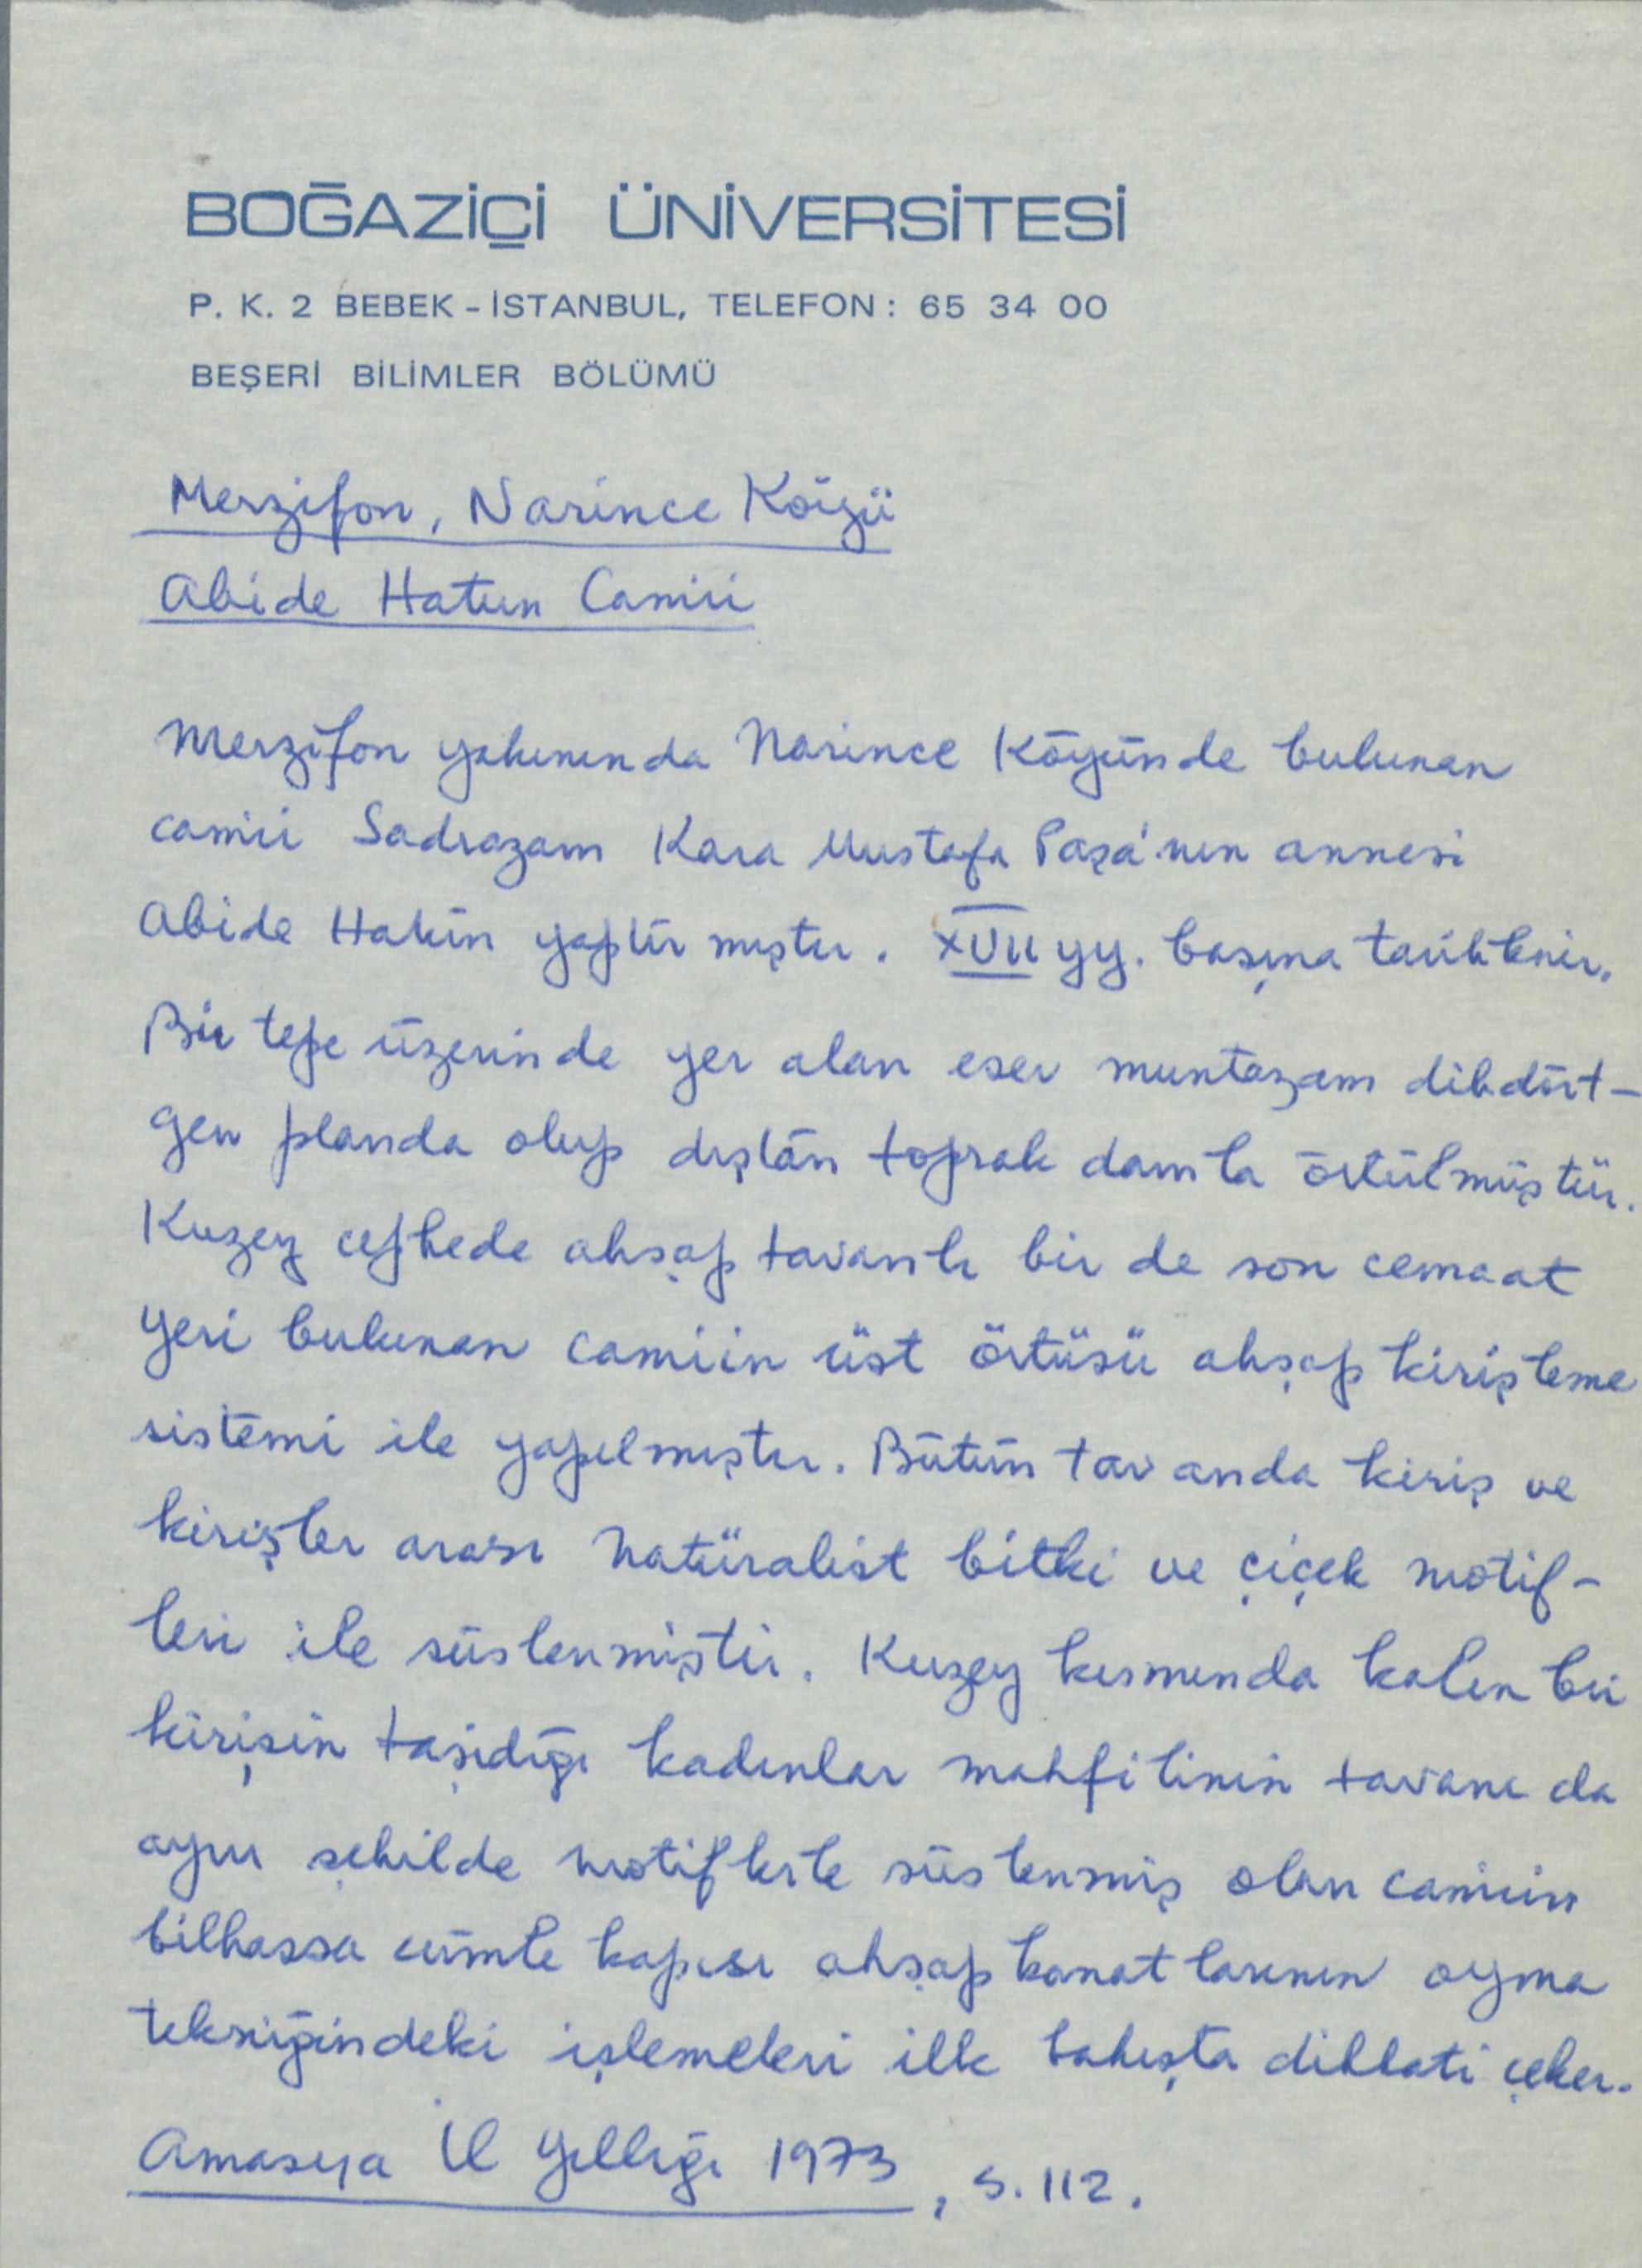 BOĞAZİÇİ ÜNİVERSİTESİ
P. K. 2 BEBEK - İSTANBUL, TELEFON : 65 34 00
BEŞERİ BİLİMLER BÖLÜMÜ
Merzifon, Narince Köyü
Abide Hatun Camii
Merzifon yakınında Narince Köyünde bulunan
camii Sadrazam Kara Mustafa Paşa'nın annesi
Abide Hatun yaptırmıştır. XVII yy. başına tarihlenir.
Bir tepe üzerinde yer alan eser muntazam dikdört-
gen planda olup dıştan toprak damla örtülmüştür.
Kuzey cephede ahşap tavanlı bir de son cemaat
yeri bulunan camiin üst örtüsü ahşap kirişleme
sistemi ile yapılmıştır. Bütün tavanda kiriş ve
kirişler arası natüralist bitki ve çiçek motif-
leri ile süslenmiştir. Kuzey kısmında kalın bir
kirişin taşıdığı kadınlar mahfilinin tavanı da
aynı şekilde motiflerle süslenmiş olan camiin
bilhassa cümle kapısı ahşap kanatlarının oyma
tekniğindeki işlemeleri ilk bakışta dikkati çeker.
Amasya İl Yıllığı 1973, s. 112.